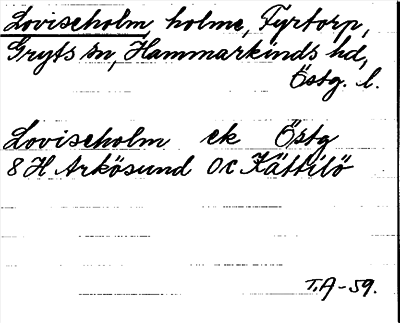 Loviseholm, holme, Fyrtorp,
Gryts sn, Hammarkinds hd,
Östg. l.
Loviseholm ek Östg
8 H Arkösund 0 c Kättilö
T.A-59.